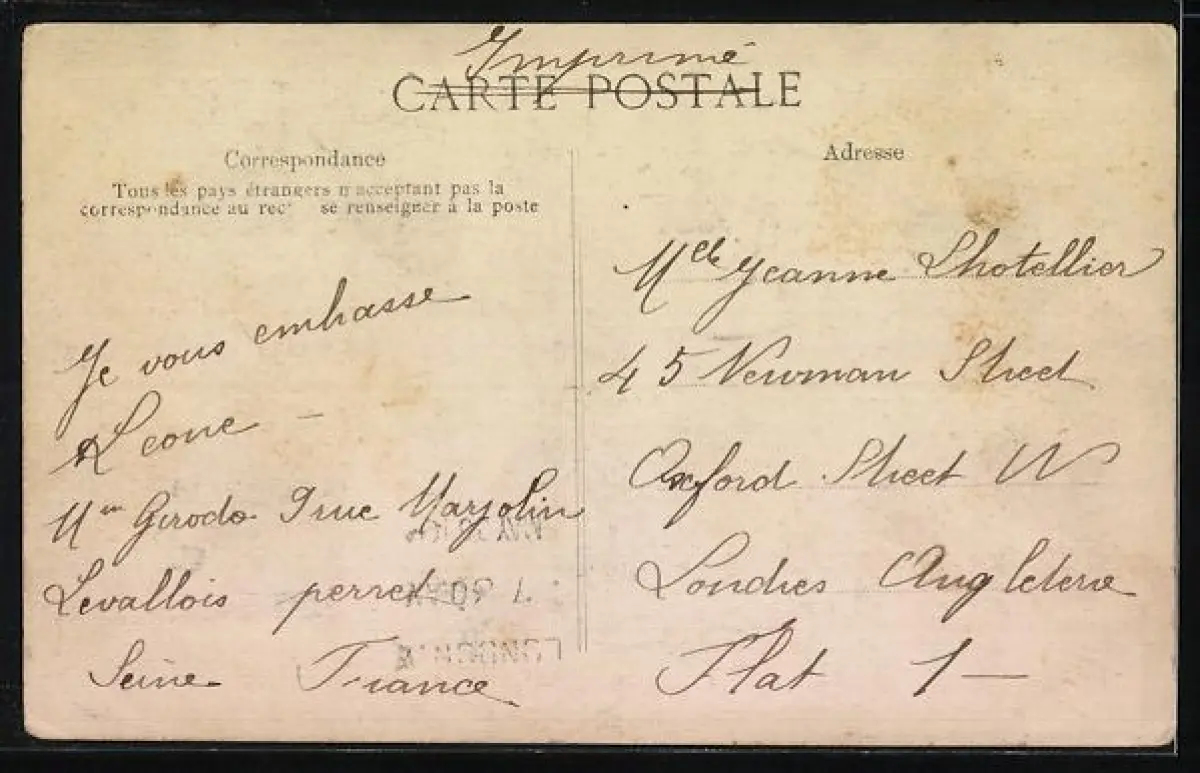 Imprimé
CARTE POSTALE
Correspondance
Tous les pays étrangers n'acceptant pas la
correspondance au rec' se renseigner à la poste
Je vous embrasse
Leone -
Mme Gerodo 9 rue Marjolin
Levallois perret
Seine France
Adresse
Melle Jeanne Lhotellier
45 Newman Street
Oxford Street W
Londres Angleterre
Flat 1 -
LONDON. W